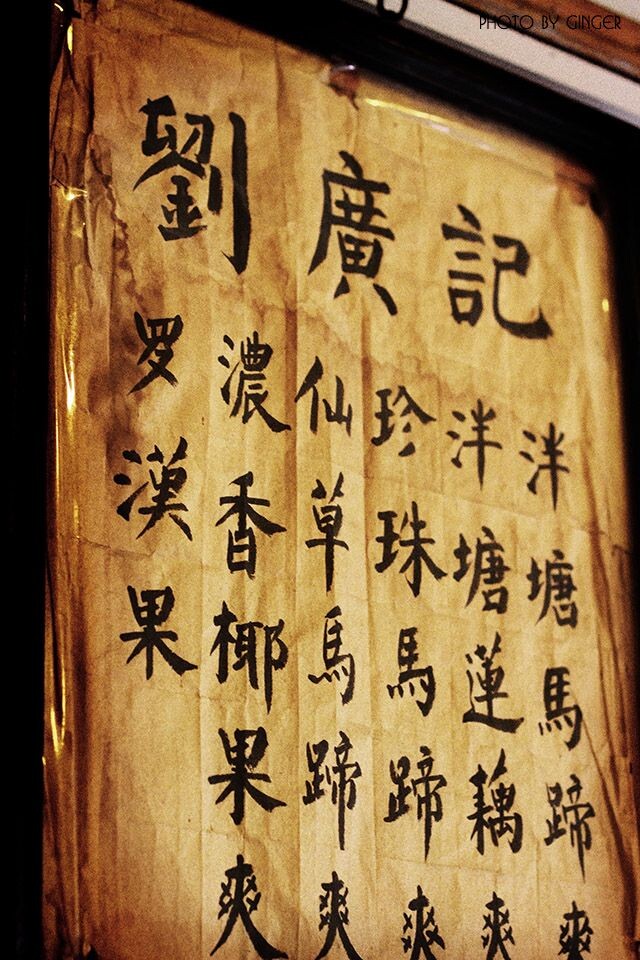 PHOTO BY GINGER
劉廣記
泮塘馬蹄爽
泮塘蓮藕爽
珍珠馬蹄爽
仙草馬蹄爽
濃香椰果爽
罗漢果